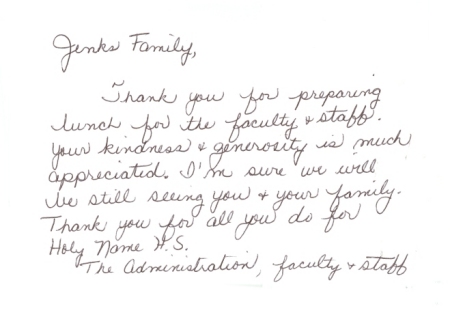 Jenks Family,
Thank you for preparing
lunch for the faculty & staff.
Your kindness & generosity is much
appreciated. I'm sure we will
be still seeing you & your family.
Thank you for all you do for
Holy Name H.S.
The Administration, faculty & staff